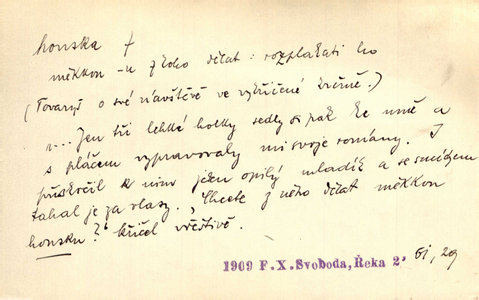 houska f
měkkou -u z koho dělat : rozplakati ho
(Tovaryš o své návštěvě ve vykřičené krčmě.)
„... Jen tři lehké holky sedly si pak ke mně a
s pláčem vypravovaly mi svoje romány. I
přiskočil k nim jeden opilý mladík a se smíchem
tahal je za vlasy. „Chcete z něho dělat měkkou
housku?" křičel vřeštivě.
1909 F. X. Svoboda, Řeka 2' 61, 29